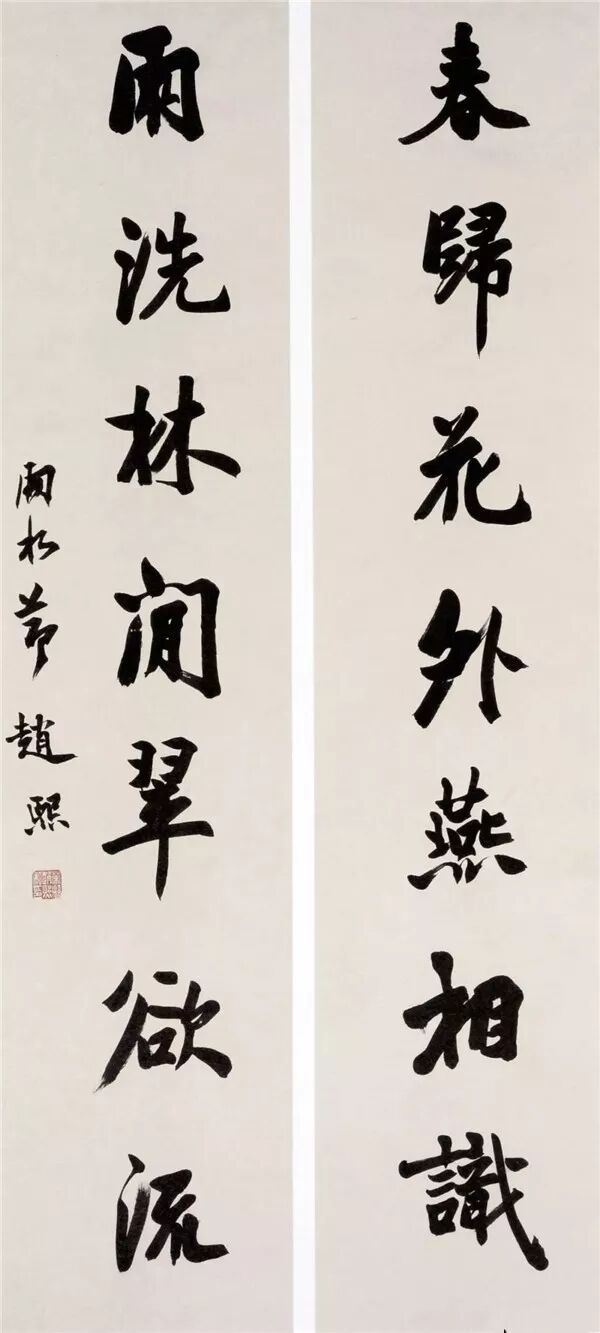 春歸花外燕相識
雨洗林間翠欲流
趙熙